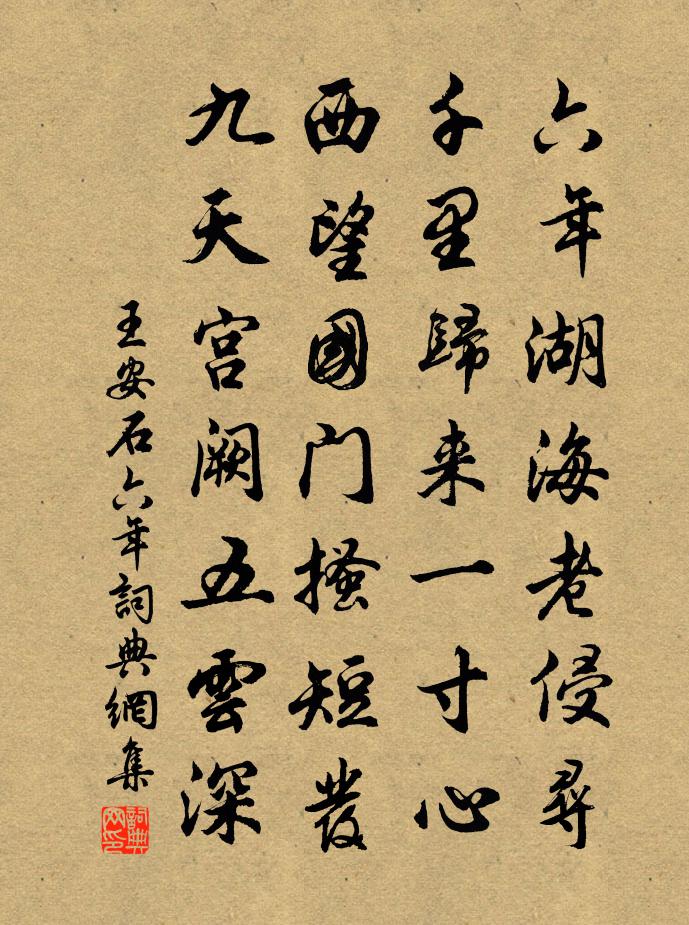 六年湖海老侵尋
千里歸来一寸心
西望國门搔短發
九天宫阙五雲深
王安石六年詞典網集
詞典网印